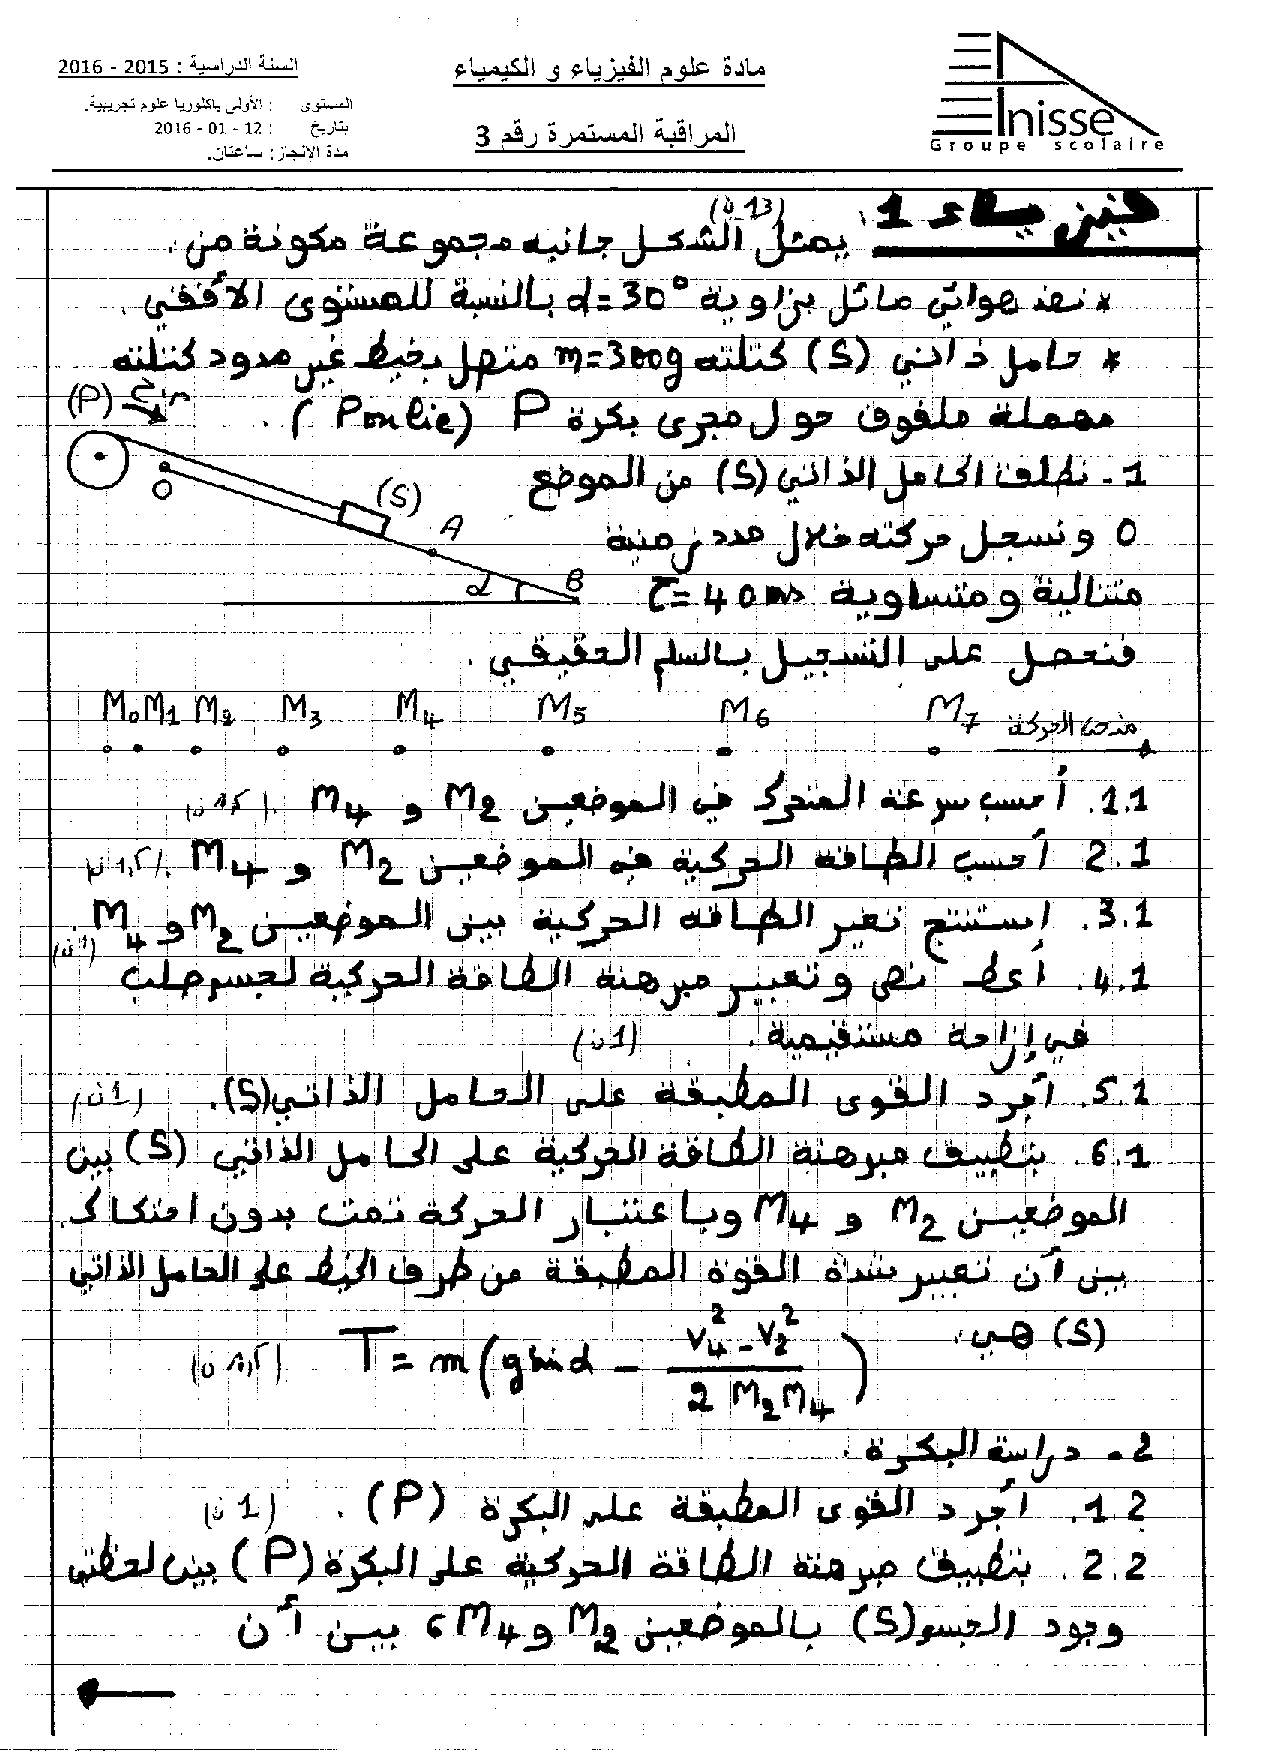 السنة الدراسية : 2015 - 2016
مادة علوم الفيزياء و الكيمياء
المستوى : الأولى باكلوريا علوم تجريبية.
بتاريخ : 12 - 01 - 2016
مدة الانجاز: ساعتان.
المراقبة المستمرة رقم 3
Elnisse
Groupe scolaire
فيزياء 1 : (13ن)
يمثل الشكل جانبه مجموعة مكونة من :
* نضد هوائي مائل بزاوية α=30° بالنسبة للمستوى الأفقي .
* حامل ذاتي (S) كتلته m=300g متصل بخيط غير مدود كتلته
مهملة ملفوف حول مجرى بكرة P (Poulie) .
(P)
O
(S)
A
α
B
1- نطلق الحامل الذاتي (S) من الموضع
O و نسجل حركته خلال مدد زمنية
متتالية و متساوية τ=40ms
فنحصل على التسجيل بالسلم الحقيقي .
M0 M1 M2 M3 M4 M5 M6 M7
منحى الحركة
1.1. أحسب سرعة المتحرك في الموضعين M2 و M4 .
2.1 أحسب الطاقة الحركية في الموضعين M2 و M4 .
3.1. استنتج تغير الطاقة الحركية بين الموضعين M2 و M4 (1ن)
4.1. أعط نص و تعبير مبرهنة الطاقة الحركية لجسم صلب
في إزاحة مستقيمية . (1ن)
5.1. أجرد القوى المطبقة على الحامل الذاتي (S). (1ن)
6.1. بتطبيق مبرهنة الطاقة الحركية على الحامل الذاتي (S) بين
الموضعين M2 و M4 وباعتبار الحركة تمت بدون احتكاك .
بين أن تعبير شدة القوة المطبقة من طرف الخيط على الحامل الذاتي
(S) هي :
T = m(g sinα - (v4² - v2²) / (2 M2M4))
2- دراسة البكرة .
1.2. أجرد القوى المطبقة على البكرة (P) . (1ن)
2.2. بتطبيق مبرهنة الطاقة الحركية على البكرة (P) بين لحظتي
وجود الجسم (S) بالموضعين M2 و M4 ، بين أن